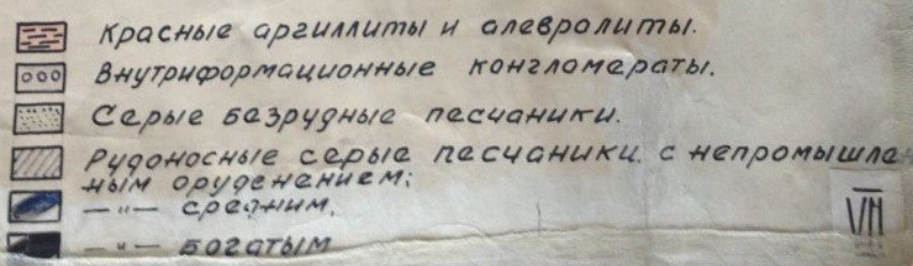 Красные аргиллиты и алевролиты.
Внутриформационные конгломераты.
Серые безрудные песчаники.
Рудоносные серые песчаники с непромышлен
ным оруденением;
— " — средним,
— " — богатым
VII